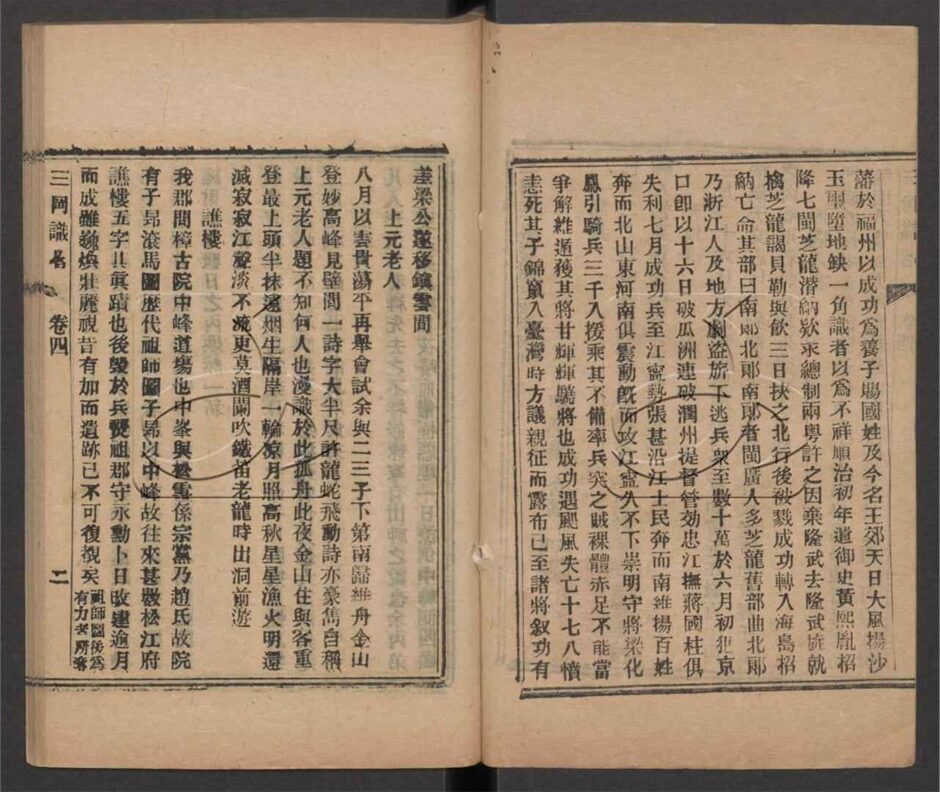 藩於福州以成功為養子賜國姓及今名王郊天日大風揚沙
玉璽墮地缺一角識者以為不祥順治初年道御史黃熙胤招
降七閩芝龍潛納欵求總制兩粤許之因乘隆武去隆武旋就
擒芝龍謁貝勒與飲三日挾之北行後被戮成功轉入海島招
納亡命其部曰南郮北郮南郮者閩廣人多芝龍舊部曲北郮
乃浙江人及地方劇盜旅下逃兵衆至數十萬於六月初犯京
口卽以十六日破瓜洲連破潤州提督管効忠江撫蔣國柱俱
失利七月成功兵至江寧勢張甚沿江士民奔而南維揚百姓
奔而北山東河南俱震動旣而攻江寧久不下崇明守將梁化
鳳引騎兵三千入援乘其不備率兵突之賊裸體赤足不能當
爭解維遁獲其將甘輝輝驍將也成功遇颶風失亡十七八憤
恚死其子錦竄入臺灣時方議親征而露布已至諸將叙功有
差梁公遂移鎮雲間
上元老人
八月以雲貴蕩平再舉會試余與二三子下第南歸維舟金山
登妙高峰見壁間一詩字大半尺許龍蛇飛動詩亦豪雋自稱
上元老人題不知何人也漫識於此孤舟此夜金山住與客重
登最上頭半抹遠烟生隔岸一輪凉月照高秋星星漁火明還
滅寂寂江聲淡不流更莫酒闌吹鐵笛老龍時出洞前遊
譙樓
我郡間樟古院中峰道塲也中峯與松雪係宗黨乃趙氏故院
有子昂滾馬圖歷代祖師圖子昂以中峰故往來甚數松江府
譙樓五字其眞蹟也後毀於兵燹祖郡守永勳卜日改建逾月
而成雖巍煥壯麗視昔有加而遺跡已不可復覩矣祖師圖後為
有力者所奪
三岡識畧 卷四 二